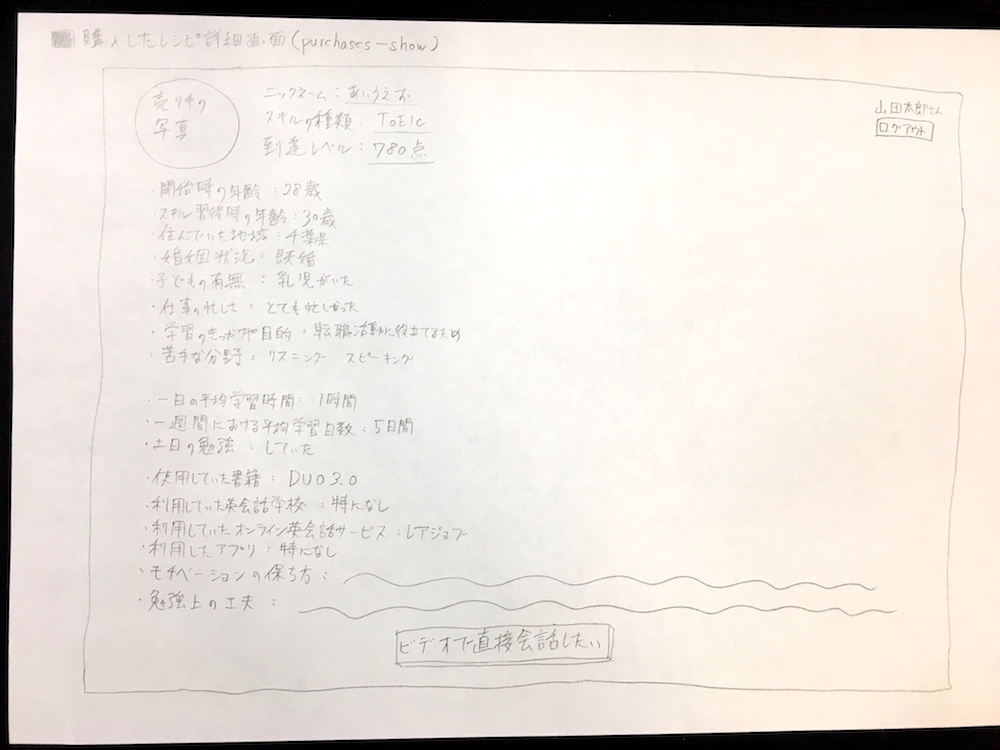 購入したレシピ詳細画面(purchases-show)
売り手の
写真
ニックネーム:あいうえお
スキルの種類:TOEIC
到達レベル:780点
山田太郎さん
ログアウト
・開始時の年齢:28歳
・スキル習得時の年齢:30歳
・住んでいた地域:千葉県
・婚姻状況:既婚
・子どもの有無:乳児がいた
・仕事の忙しさ:とても忙しかった
・学習のきっかけや目的:転職活動に役立てるため
・苦手な分野:リスニング スピーキング
・一日の平均学習時間:1時間
・一週間における平均学習日数:5日間
・土日の勉強:していた
・使用していた書籍:DUO3.0
・利用していた英会話学校:特になし
・利用していたオンライン英会話サービス:レアジョブ
・利用したアプリ:特になし
・モチベーションの保ち方:
・勉強上の工夫:
ビデオで直接会話したい